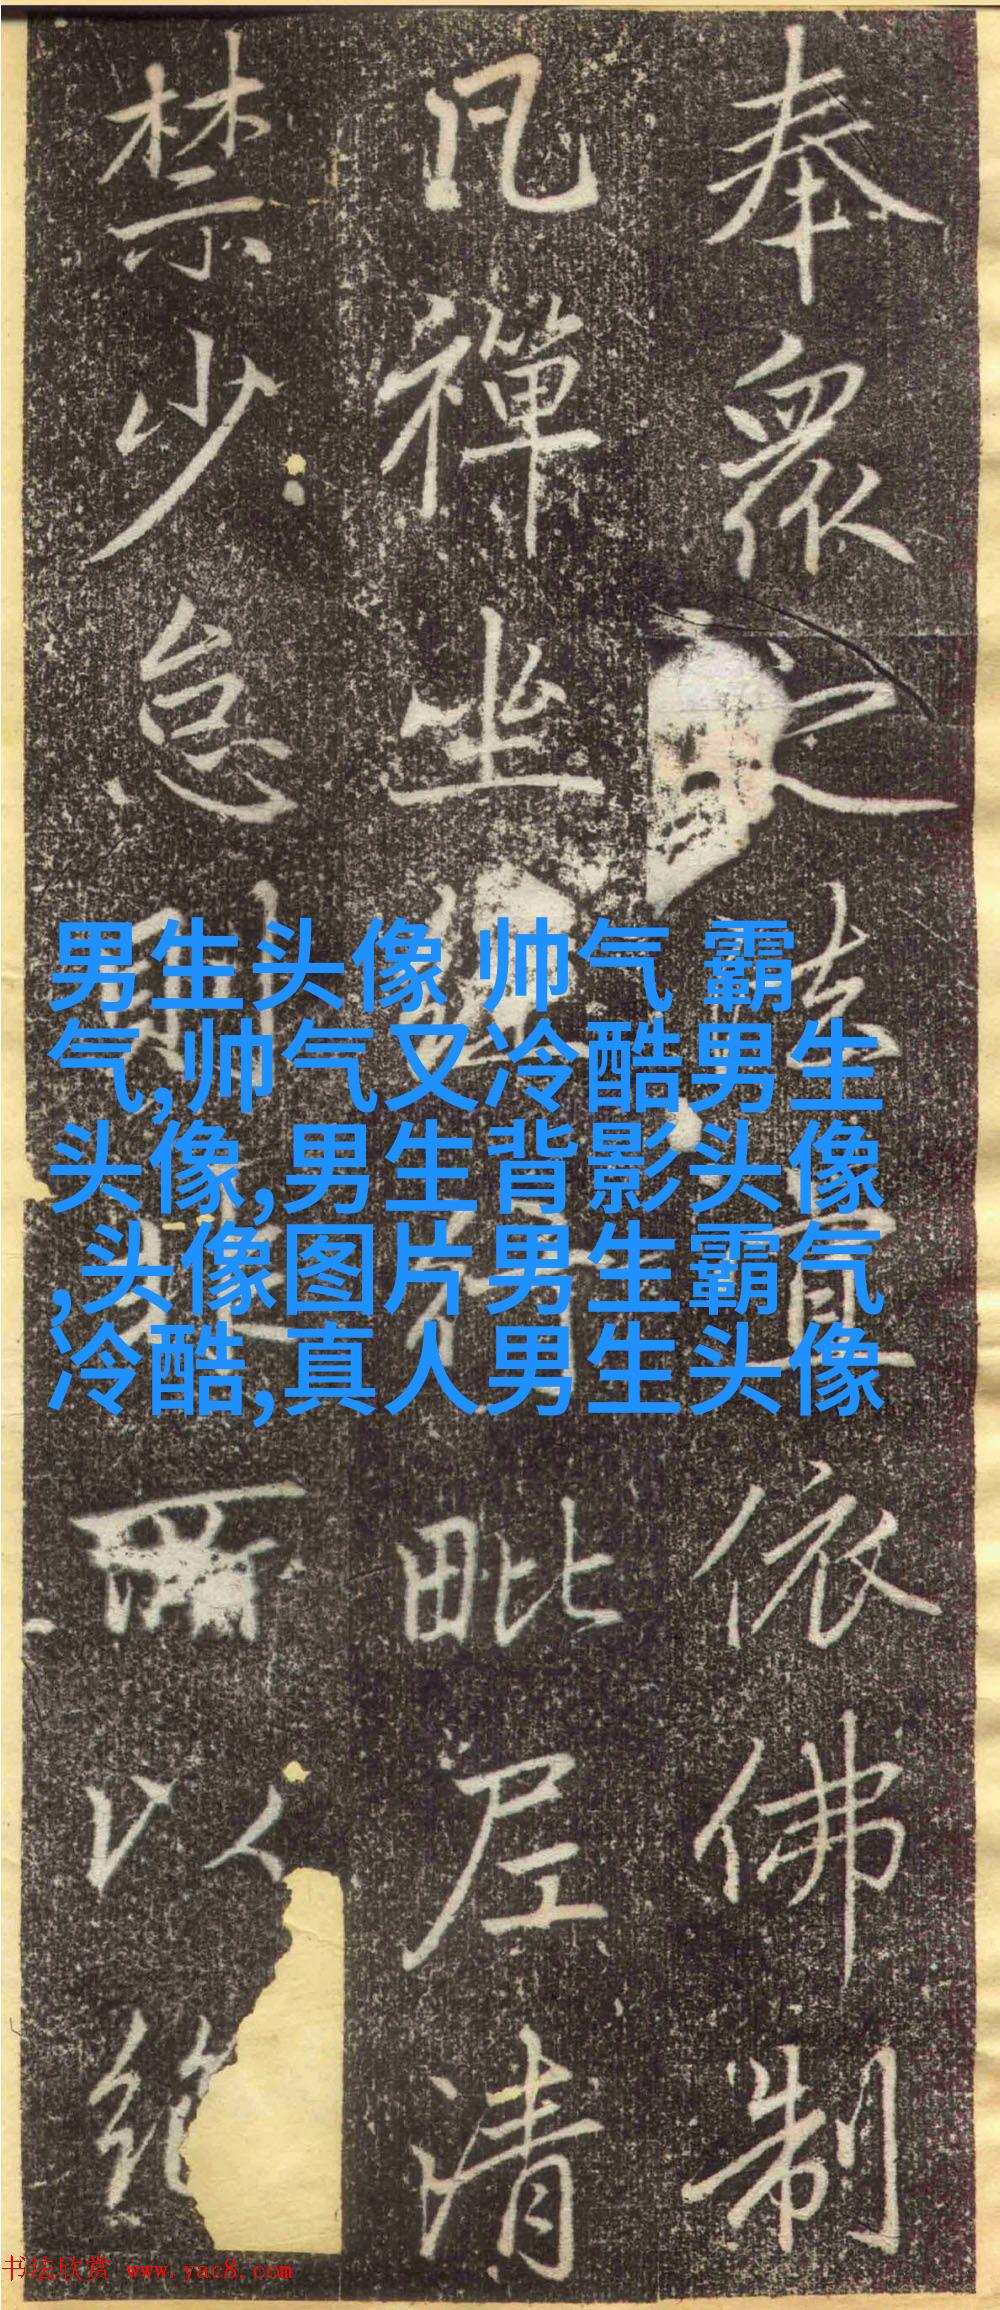 奉眾依佛制
凡禪坐毗尼清
禁少怠以
男生头像 帅气 霸
气,帅气又冷酷男生
头像,男生背影头像
,头像图片男生霸气
冷酷,真人男生头像
书法欣赏 www.yac8.com